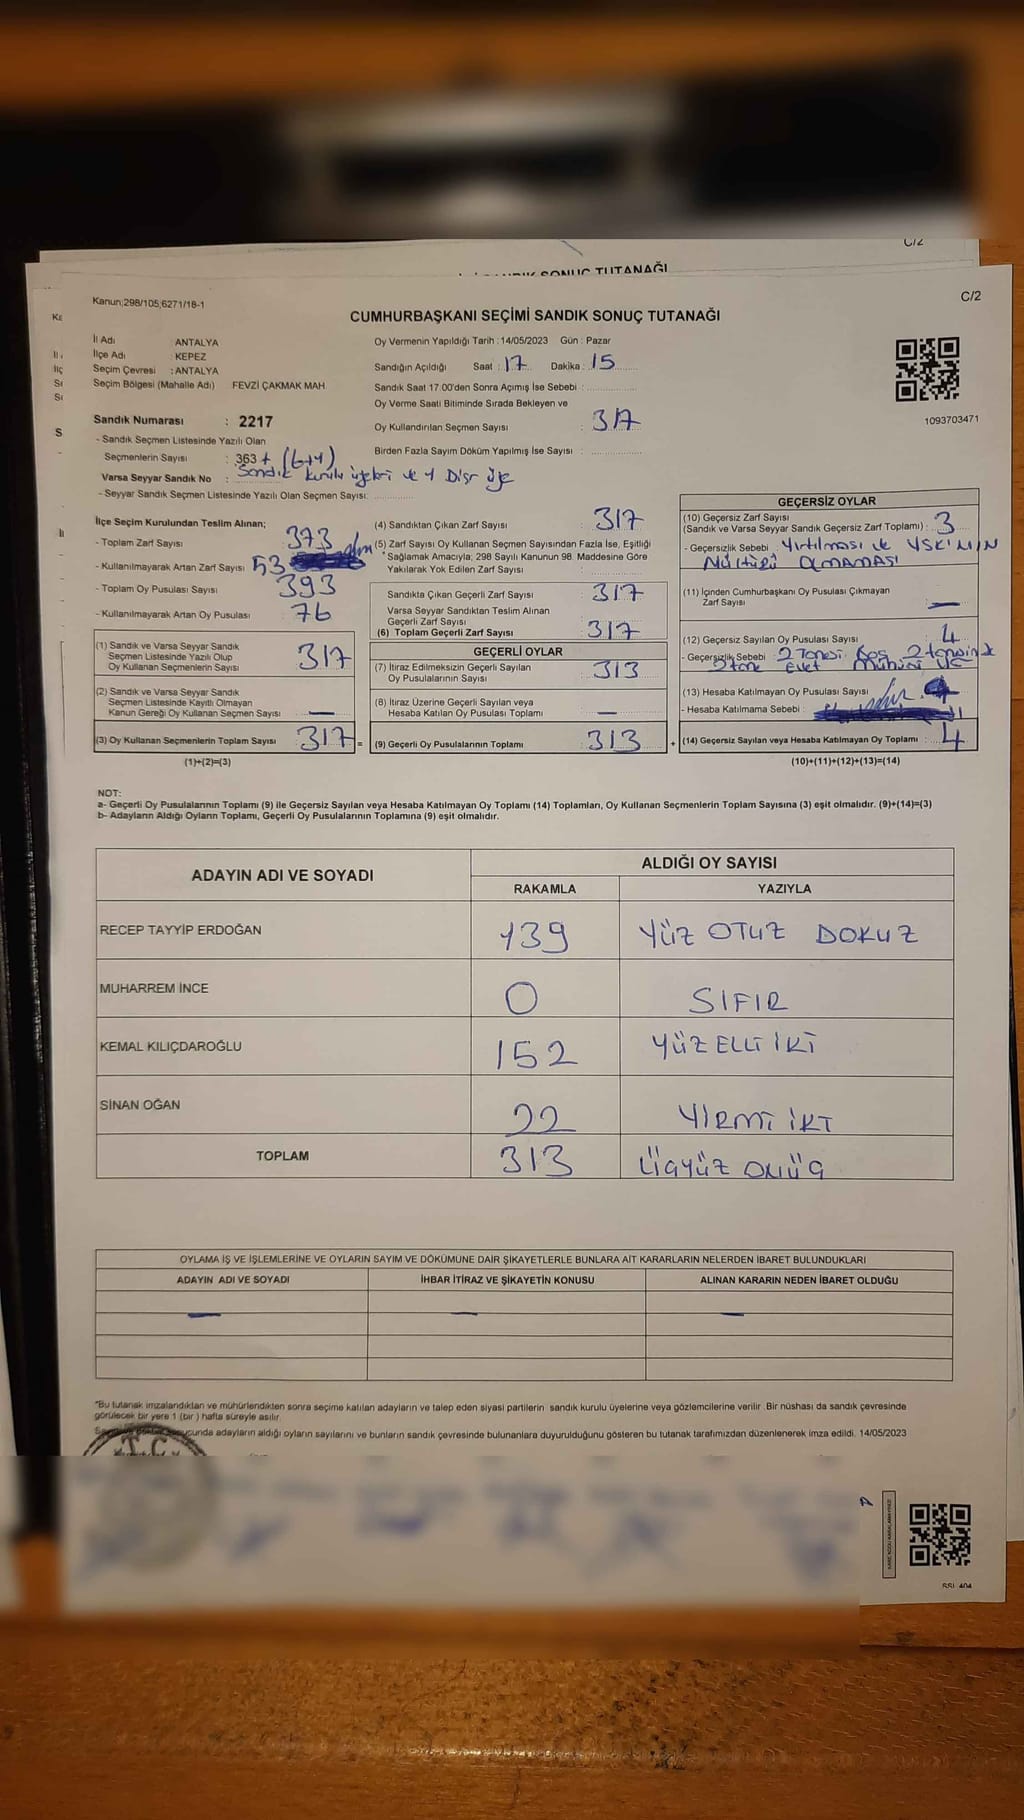 C/2
SANDIK SONUÇ TUTANAĞI
Kanun;298/105;6271/18-1
C/2
CUMHURBAŞKANI SEÇİMİ SANDIK SONUÇ TUTANAĞI
İl Adı : ANTALYA
İlçe Adı : KEPEZ
Seçim Çevresi : ANTALYA
Seçim Bölgesi (Mahalle Adı) FEVZİ ÇAKMAK MAH
Oy Vermenin Yapıldığı Tarih : 14/05/2023 Gün : Pazar
Sandığın Açıldığı Saat : 17 Dakika : 15
Sandık Saat 17.00'den Sonra Açımış İse Sebebi :
Oy Verme Saati Bitiminde Sırada Bekleyen ve
Oy Kullandırılan Seçmen Sayısı : 317
Birden Fazla Sayım Döküm Yapılmış İse Sayısı :
1093703471
Sandık Numarası : 2217
- Sandık Seçmen Listesinde Yazılı Olan
Seçmenlerin Sayısı : 363 + (6+1)
Varsa Seyyar Sandık No : Sandık kurulu üyeleri ve 1 Dışr üye
- Seyyar Sandık Seçmen Listesinde Yazılı Olan Seçmen Sayısı:
İlçe Seçim Kurulundan Teslim Alınan;
- Toplam Zarf Sayısı : 373
- Kullanılmayarak Artan Zarf Sayısı : 53
- Toplam Oy Pusulası Sayısı : 393
- Kullanılmayarak Artan Oy Pusulası : 76
(1) Sandık ve Varsa Seyyar Sandık
Seçmen Listesinde Yazılı Olup
Oy Kullanan Seçmenlerin Sayısı : 317
(2) Sandık ve Varsa Seyyar Sandık
Seçmen Listesinde Kayıtlı Olmayan
Kanun Gereği Oy Kullanan Seçmen Sayısı : —
(3) Oy Kullanan Seçmenlerin Toplam Sayısı : 317 =
(1)+(2)=(3)
(4) Sandıktan Çıkan Zarf Sayısı : 317
(5) Zarf Sayısı Oy Kullanan Seçmen Sayısından Fazla İse, Eşitliği
Sağlamak Amacıyla; 298 Sayılı Kanunun 98. Maddesine Göre
Yakılarak Yok Edilen Zarf Sayısı :
Sandıkta Çıkan Geçerli Zarf Sayısı : 317
Varsa Seyyar Sandıktan Teslim Alınan
Geçerli Zarf Sayısı :
(6) Toplam Geçerli Zarf Sayısı : 317
GEÇERLİ OYLAR
(7) İtiraz Edilmeksizin Geçerli Sayılan
Oy Pusulalarının Sayısı : 313
(8) İtiraz Üzerine Geçerli Sayılan veya
Hesaba Katılan Oy Pusulası Toplamı : —
(9) Geçerli Oy Pusulalarının Toplamı : 313 +
GEÇERSİZ OYLAR
(10) Geçersiz Zarf Sayısı
(Sandık ve Varsa Seyyar Sandık Geçersiz Zarf Toplamı) : 3
- Geçersizlik Sebebi : Yırtılması ve YSK'NIN
Mühürü OLMAMASI
(11) İçinden Cumhurbaşkanı Oy Pusulası Çıkmayan
Zarf Sayısı : —
(12) Geçersiz Sayılan Oy Pusulası Sayısı : 4
- Geçersizlik Sebebi : 2 Tanesi Boş 2 tanesinde
2 tane Evet Mühürü Ve
(13) Hesaba Katılmayan Oy Pusulası Sayısı :
- Hesaba Katılmama Sebebi :
(14) Geçersiz Sayılan veya Hesaba Katılmayan Oy Toplamı : 4
(10)+(11)+(12)+(13)=(14)
NOT:
a- Geçerli Oy Pusulalarının Toplamı (9) ile Geçersiz Sayılan veya Hesaba Katılmayan Oy Toplamı (14) Toplamları, Oy Kullanan Seçmenlerin Toplam Sayısına (3) eşit olmalıdır. (9)+(14)=(3)
b- Adayların Aldığı Oyların Toplamı, Geçerli Oy Pusulalarının Toplamına (9) eşit olmalıdır.
ADAYIN ADI VE SOYADI ALDIĞI OY SAYISI
RAKAMLA YAZIYLA
RECEP TAYYİP ERDOĞAN 139 YÜZ OTUZ DOKUZ
MUHARREM İNCE 0 SIFIR
KEMAL KILIÇDAROĞLU 152 YÜZ ELLİ İKİ
SİNAN OĞAN 22 YİRMİ İKİ
TOPLAM 313 ÜÇYÜZ ONÜÇ
OYLAMA İŞ VE İŞLEMLERİNE VE OYLARIN SAYIM VE DÖKÜMÜNE DAİR ŞİKAYETLERLE BUNLARA AİT KARARLARIN NELERDEN İBARET BULUNDUKLARI
ADAYIN ADI VE SOYADI İHBAR İTİRAZ VE ŞİKAYETİN KONUSU ALINAN KARARIN NEDEN İBARET OLDUĞU
— — —
"Bu tutanak imzalandıktan ve mühürlendikten sonra seçime katılan adayların ve talep eden siyasi partilerin sandık kurulu üyelerine veya gözlemcilerine verilir. Bir nüshası da sandık çevresinde
görülecek bir yere 1 (bir) hafta süreyle asılır.
sonucunda adayların aldığı oyların sayılarını ve bunların sandık çevresinde bulunanlara duyurulduğunu gösteren bu tutanak tarafımızdan düzenlenerek imza edildi. 14/05/2023
T.C.